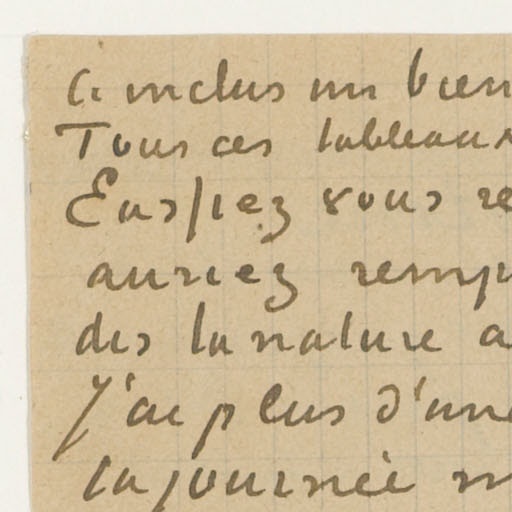 Ci inclus un bien
Tous ces tableaux
Eussiez vous re
auriez remp
des la nature a
J'ai plus d'une
la journée m